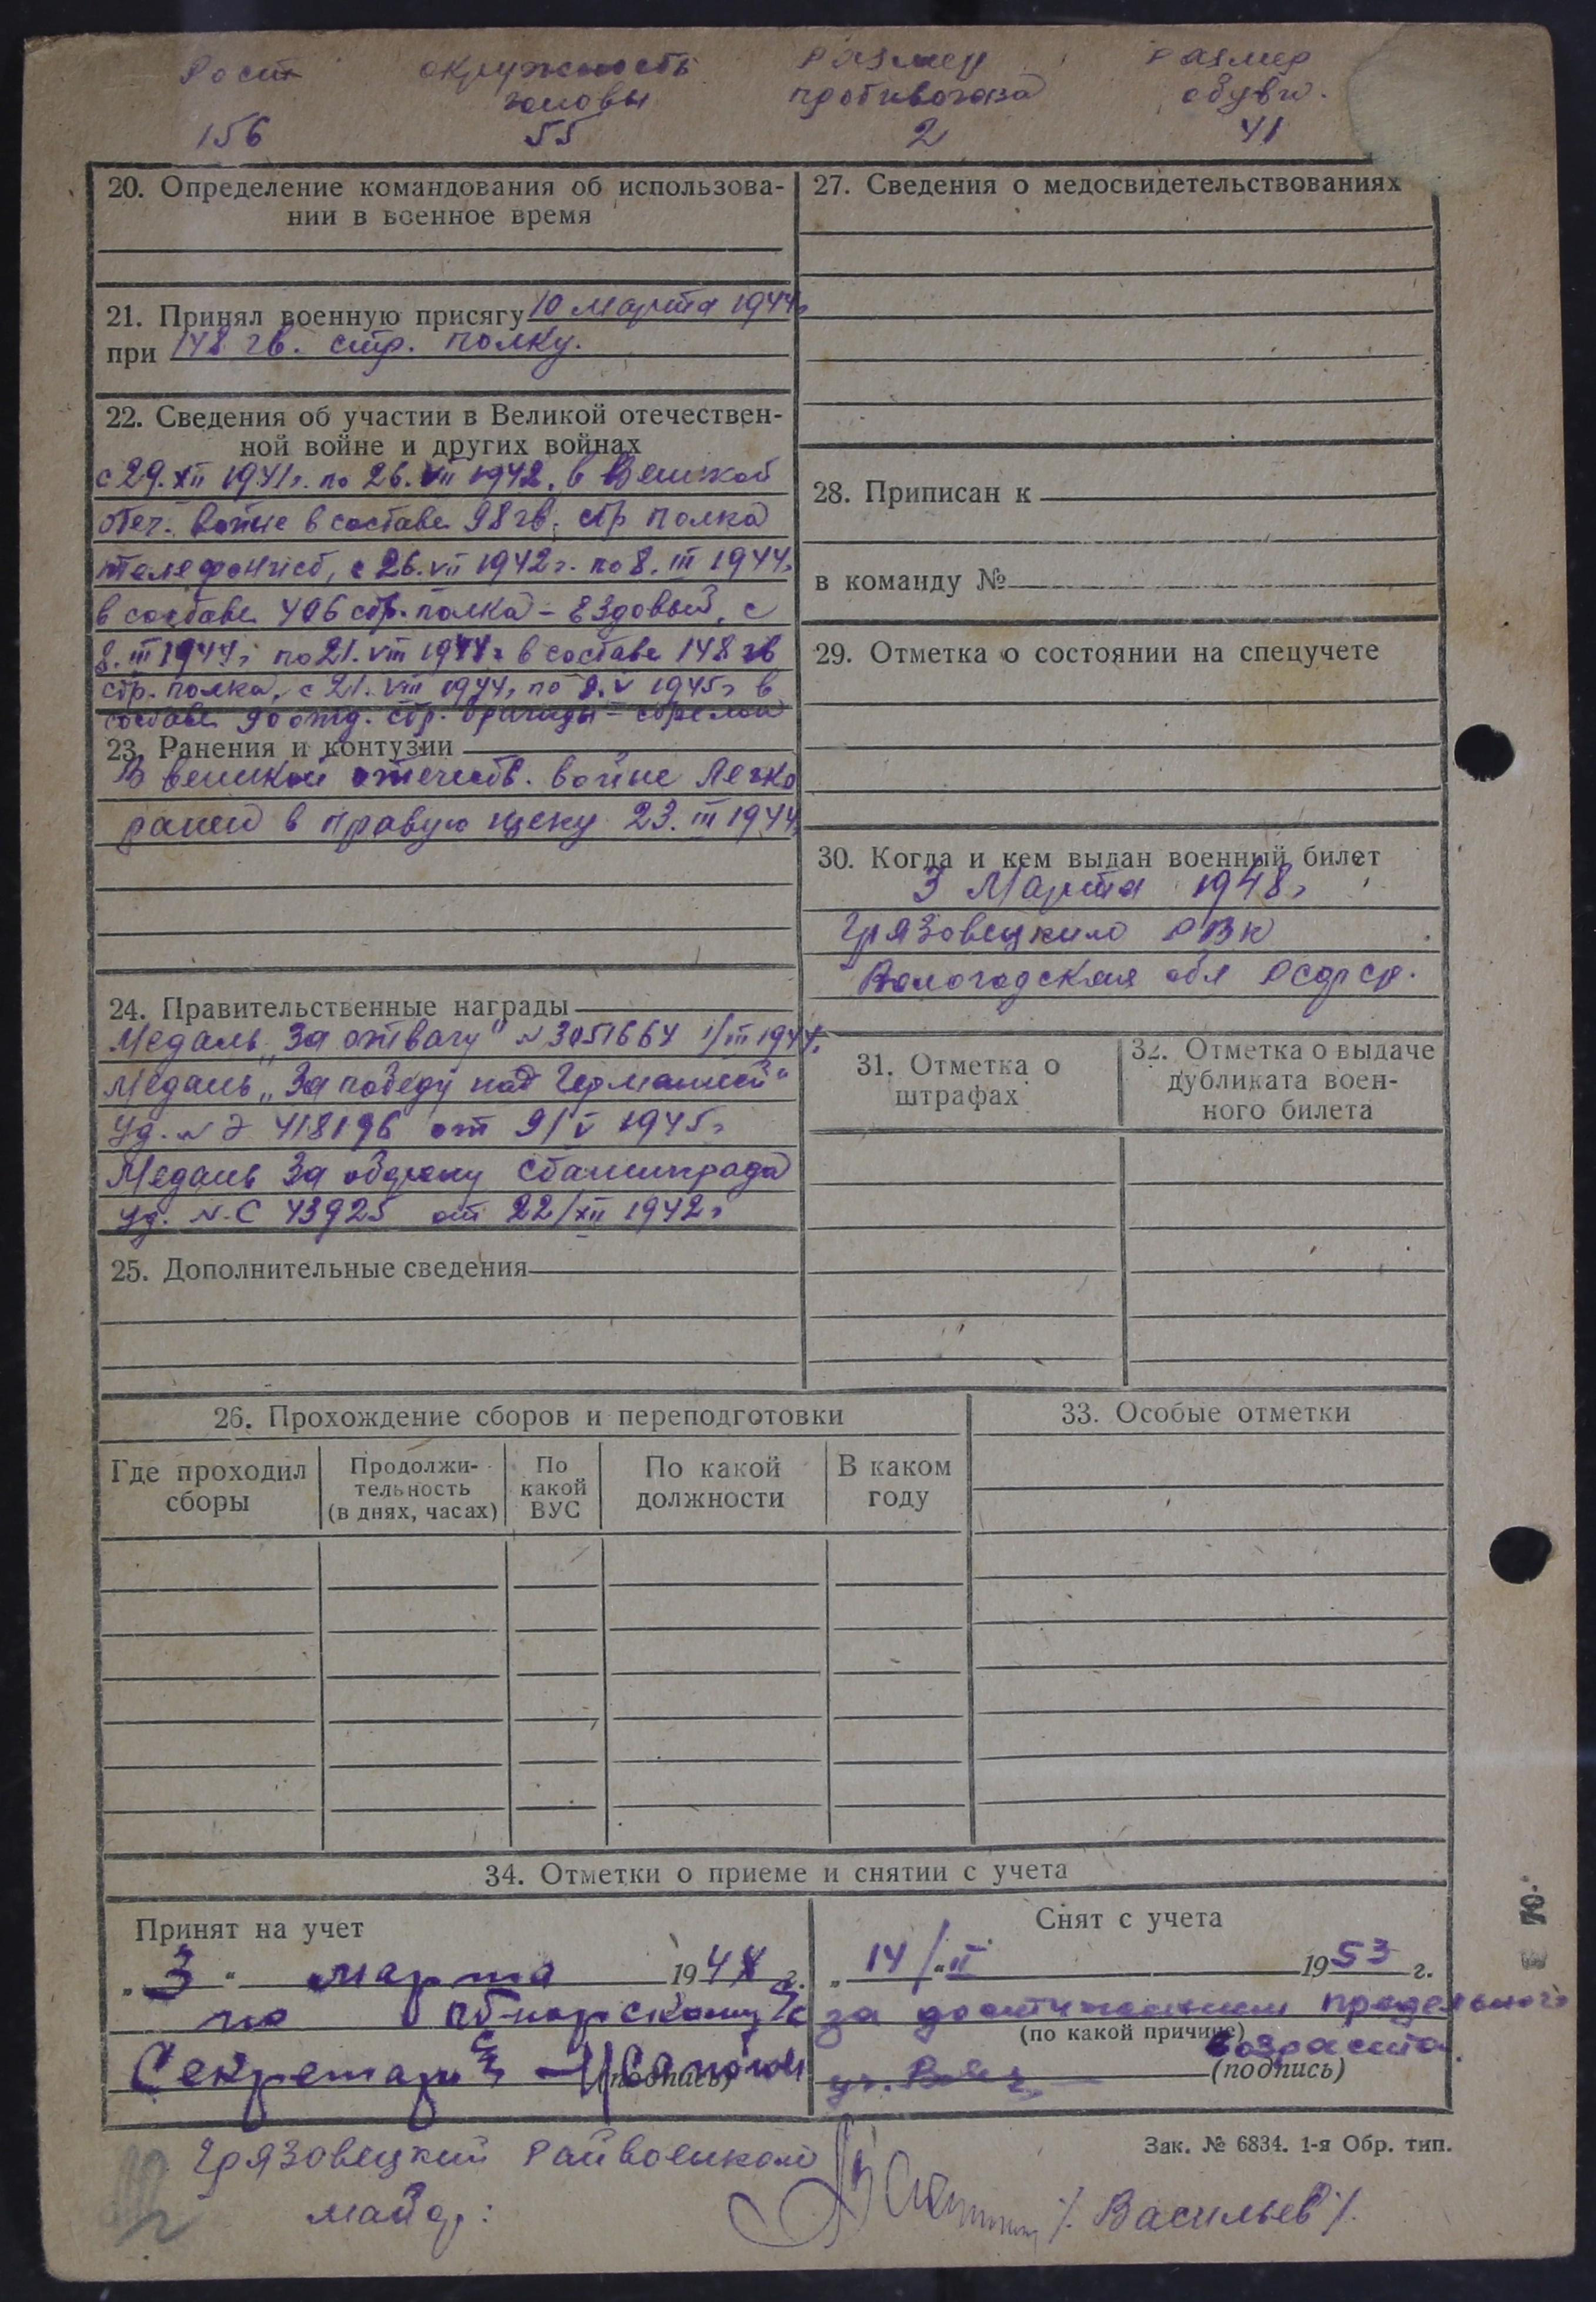 Рост окружность размер размер
головы противогаза обуви.
156 55 2 41
20. Определение командования об использова-
нии в военное время
21. Принял военную присягу 10 марта 1944г
при 148 гв. стр. полку.
22. Сведения об участии в Великой отечествен-
ной войне и других войнах
с 29.XII 1941г. по 26.VII 1942. в Великой
отеч. войне в составе 98 гв. стр полка
телефонист, с 26.VII 1942г. по 8.III 1944г
в составе 406 стр. полка - Ездовый, с
8.III 1944г по 21.VIII 1944г в составе 148 гв
стр. полка, с 21.VIII 1944г по 9.V 1945г в
составе 90 отд. стр. бригады - стрелок
23. Ранения и контузии
В великой отечеств. войне Легко
ранен в правую щеку 23.III 1944г
24. Правительственные награды
Медаль „За отвагу" N 3051664 1/III 1944г.
Медаль „За победу над Германией"
Уд. N Э 418196 от 9/V 1945г
Медаль За оборону Сталинграда
Уд. N. С 43925 от 22/XII 1942г
25. Дополнительные сведения
26. Прохождение сборов и переподготовки
Где проходил сборы
Продолжи-
тельность
(в днях, часах)
По какой ВУС
По какой должности
В каком году
27. Сведения о медосвидетельствованиях
28. Приписан к
в команду №
29. Отметка о состоянии на спецучете
30. Когда и кем выдан военный билет
3 Марта 1948г
Грязовецким РВК
Вологодская обл РСФСР.
31. Отметка о
штрафах
32. Отметка о выдаче
дубликата воен-
ного билета
33. Особые отметки
34. Отметки о приеме и снятии с учета
Принят на учет
„3" марта 1948 г.
по Обнорскому с/с
Секретарь
(подпись)
Снят с учета
„14/"II 1953 г.
за достижением предельного
(по какой причине) возраста.
(подпись)
Зак. № 6834. 1-я Обр. тип.
Грязовецкий Райвоенком
майор: /Васильев/.
70.